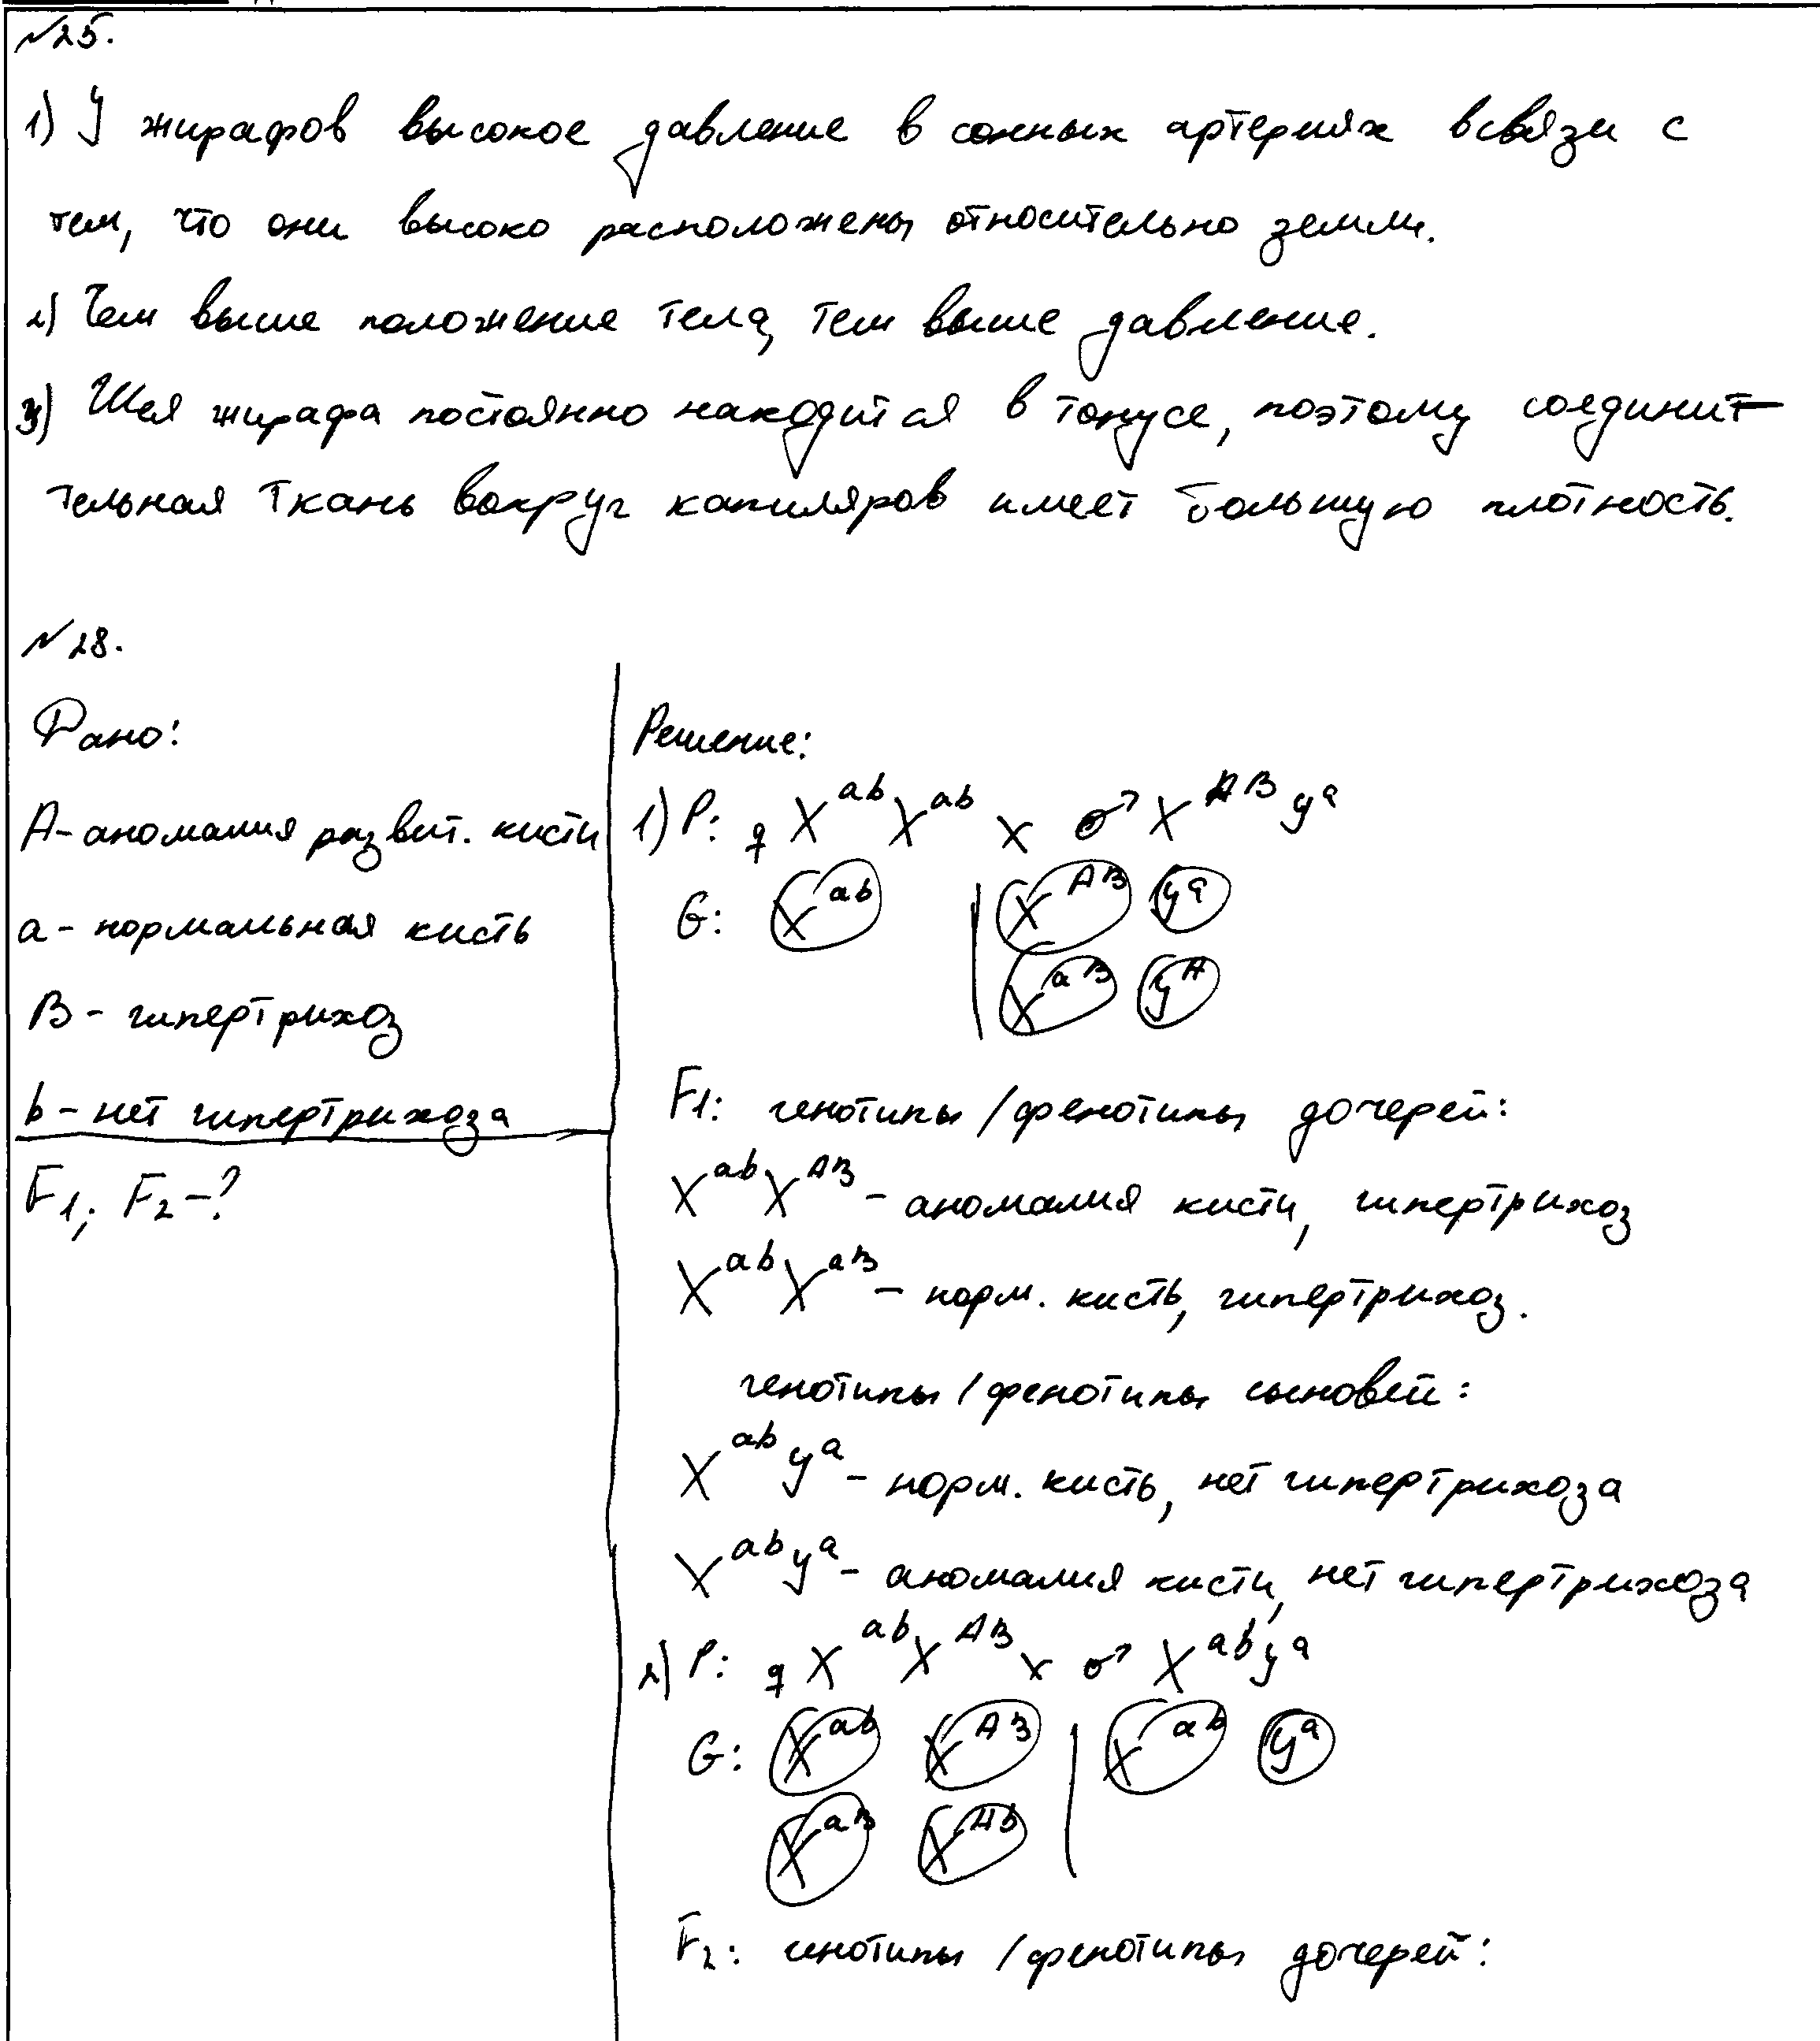 №25.
1) У жирафов высокое давление в сонных артериях всвязи с
тем, что они высоко расположены относительно земли.
2) Чем выше положение тела, тем выше давление.
3) Шея жирафа постоянно находится в тонусе, поэтому соединит-
тельная ткань вокруг капиляров имеет большую плотность.
№28.
Дано:
A - аномалия развит. кисти
a - нормальная кисть
B - гипертрихоз
b - нет гипертрихоза
F1; F2 - ?
Решение:
1) P: ♀ X^ab X^ab x ♂ X^AB y^a
G: X^ab | X^AB y^a
X^aB y^A
F1: генотипы / фенотипы дочерей:
X^ab X^AB - аномалия кисти, гипертрихоз
X^ab X^aB - норм. кисть, гипертрихоз.
генотипы / фенотипы сыновей:
X^ab y^a - норм. кисть, нет гипертрихоза
X^ab y^a - аномалия кисти, нет гипертрихоза
2) P: ♀ X^ab X^AB x ♂ X^ab y^a
G: X^ab X^AB | X^ab y^a
X^aB X^Ab
F2: генотипы / фенотипы дочерей: